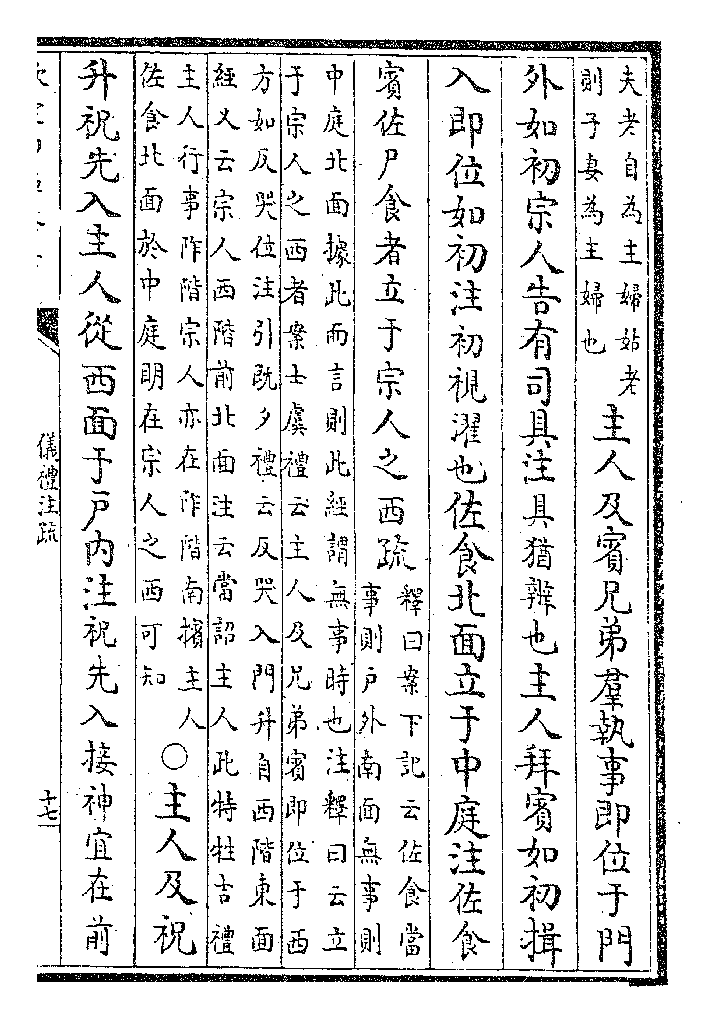 夫老自為主婦姑老
則子妻為主婦也
主人及賓兄弟羣執事即位于門
外如初宗人告有司具注具猶辨也主人拜賓如初揖
入即位如初注初視濯也佐食北面立于中庭注佐食
賓佐尸食者立于宗人之西疏
釋曰案下記云佐食當
事則户外南面無事則
中庭北面據此而言則此經謂無事時也注釋曰云立
于宗人之西者案士虞禮云主人及兄弟賓即位于西
方如反哭位注引既夕禮云反哭入門升自西階東面
經又云宗人西階前北面注云當詔主人此特牲吉禮
主人行事阼階宗人亦在阼階南擯主人
佐食北面於中庭明在宗人之西可知
○主人及祝
升祝先入主人從西面于戸内注祝先入接神宜在前
儀禮注疏
十七